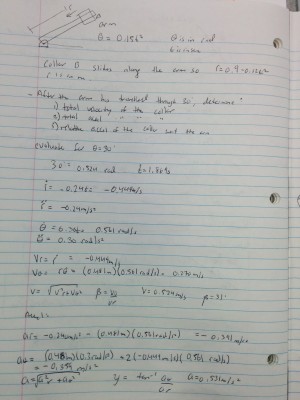 r
B
arm
θ = 0.15t²
θ is in rad
t is in sec
Collar B slides along the arm so r = 0.9 - 0.12t²
r is in m
- After the arm has traveled through 30°, determine:
1) total velocity of the collar
2) total accel " " "
3) relative accel of the collar wrt the arm
evaluate for θ=30°
30° = 0.524 rad t=1.869s
ṙ = -0.24t = -0.449m/s
r̈ = -0.24m/s²
θ̇ = 0.30t = 0.561 rad/s
θ̈ = 0.30 rad/s²
Vr = ṙ = -0.449m/s
Vθ = rθ̇ = (0.481m)(0.561rad/s) = 0.270m/s
V = √Vr²+Vθ² V=0.524m/s β=31°
ar = -0.24m/s² - (0.481m)(0.561rad/s)² = -0.391 m/s²
aθ = (0.481m)(0.3rad/s²) + 2(-0.449m/s)(0.561 rad/s)
= -0.359 m/s²
a = √ar² + aθ² γ = tan⁻¹ aθ/ar a=0.531m/s²